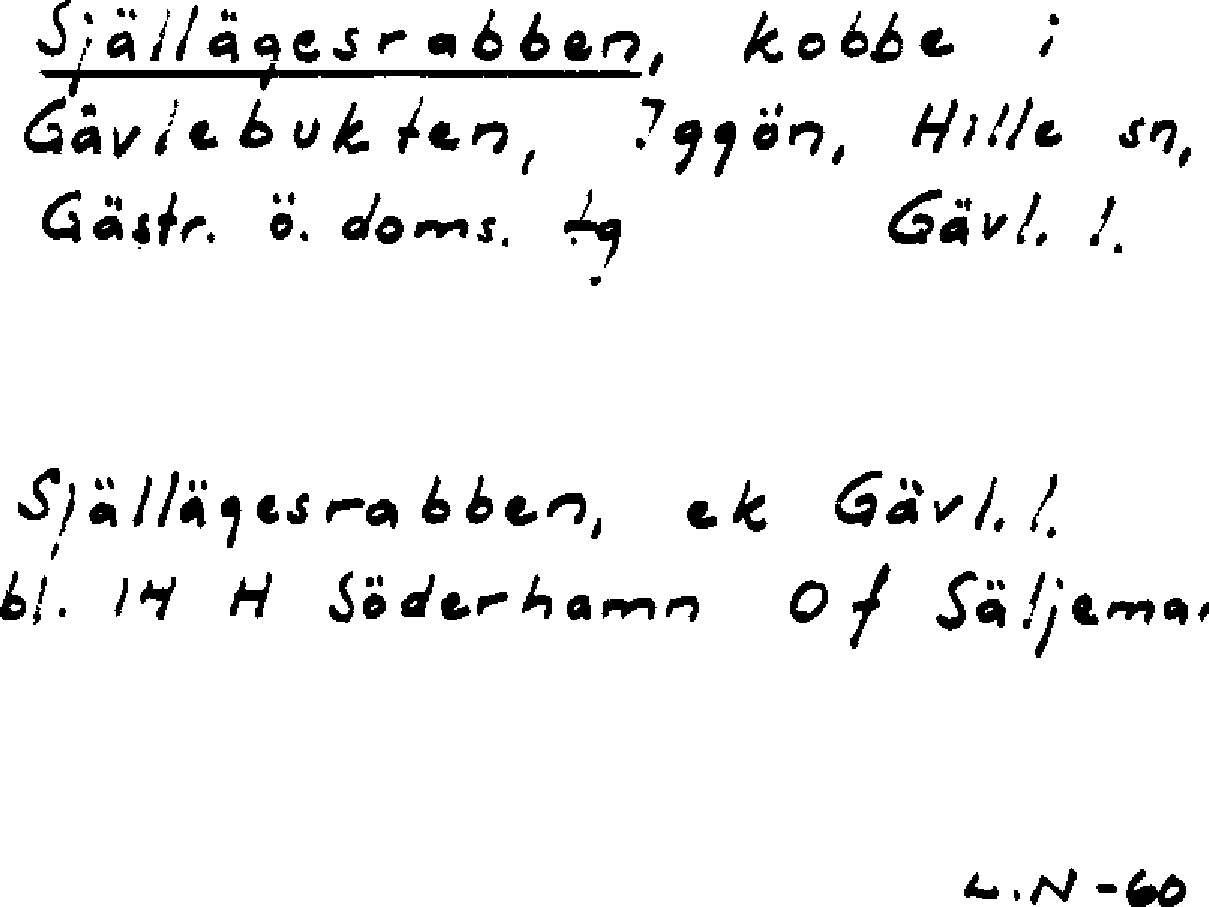 Själlägesrabben, kobbe i
Gävlebukten, Iggön, Hille sn,
Gästr. ö. doms. tg Gävl. l.
Själlägesrabben, ek Gävl. l.
bl. 14 H Söderhamn 0 f Säljemar
L.N -60